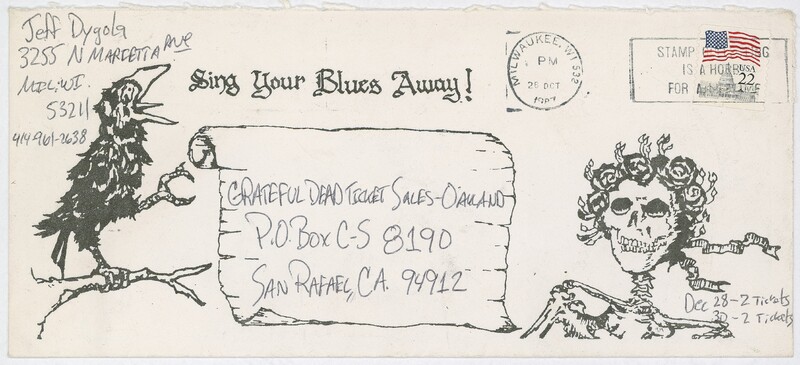 Jeff Dygola
3255 N MARIETTA AVE
MIL, WI.
53211
414-961-2638
Sing Your Blues Away!
MILWAUKEE, WI 532
PM
26 OCT
1987
STAMP
IS A HOBBY
FOR A
USA
22
GRATEFUL DEAD TICKET SALES-OAKLAND
P.O. BOX C-S 8190
SAN RAFAEL, CA. 94912
Dec 28-2 Tickets
30-2 Tickets